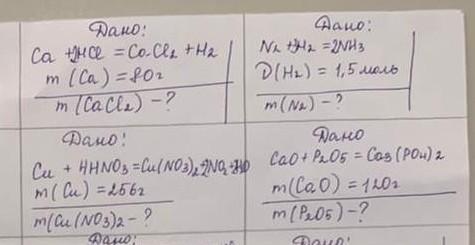 Дано:
Ca + 2HCl = CaCl2 + H2
m (Ca) = 80г
m (CaCl2) - ?
Дано:
N2 + H2 = 2NH3
D(H2) = 1,5 моль
m(N2) - ?
Дано:
Cu + 4HNO3 = Cu(NO3)2 + 2NO2 + H2O
m(Cu) = 256г
m(Cu(NO3)2 - ?
Дано
CaO + P2O5 = Ca3(PO4)2
m(CaO) = 120г
m(P2O5) - ?
Дано:
Дано: